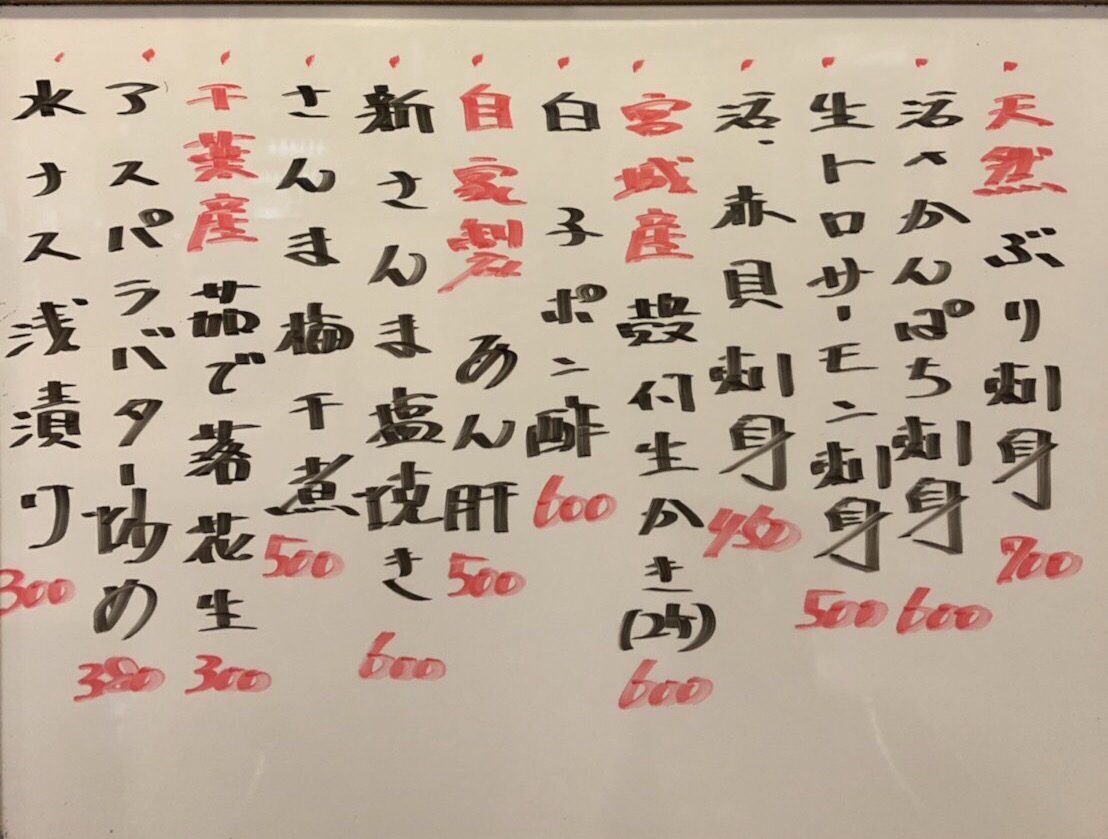 天然 ぶり刺身 700
活〆かんぱち刺身 600
生トロサーモン刺身 500
活・赤貝刺身 450
宮城産 殻付生かき(2ケ) 600
白子ポン酢 600
自家製 あん肝 500
新さんま塩焼き 600
さんま梅干煮 500
千葉産 茹で落花生 300
アスパラバター炒め 380
水ナス浅漬り 300